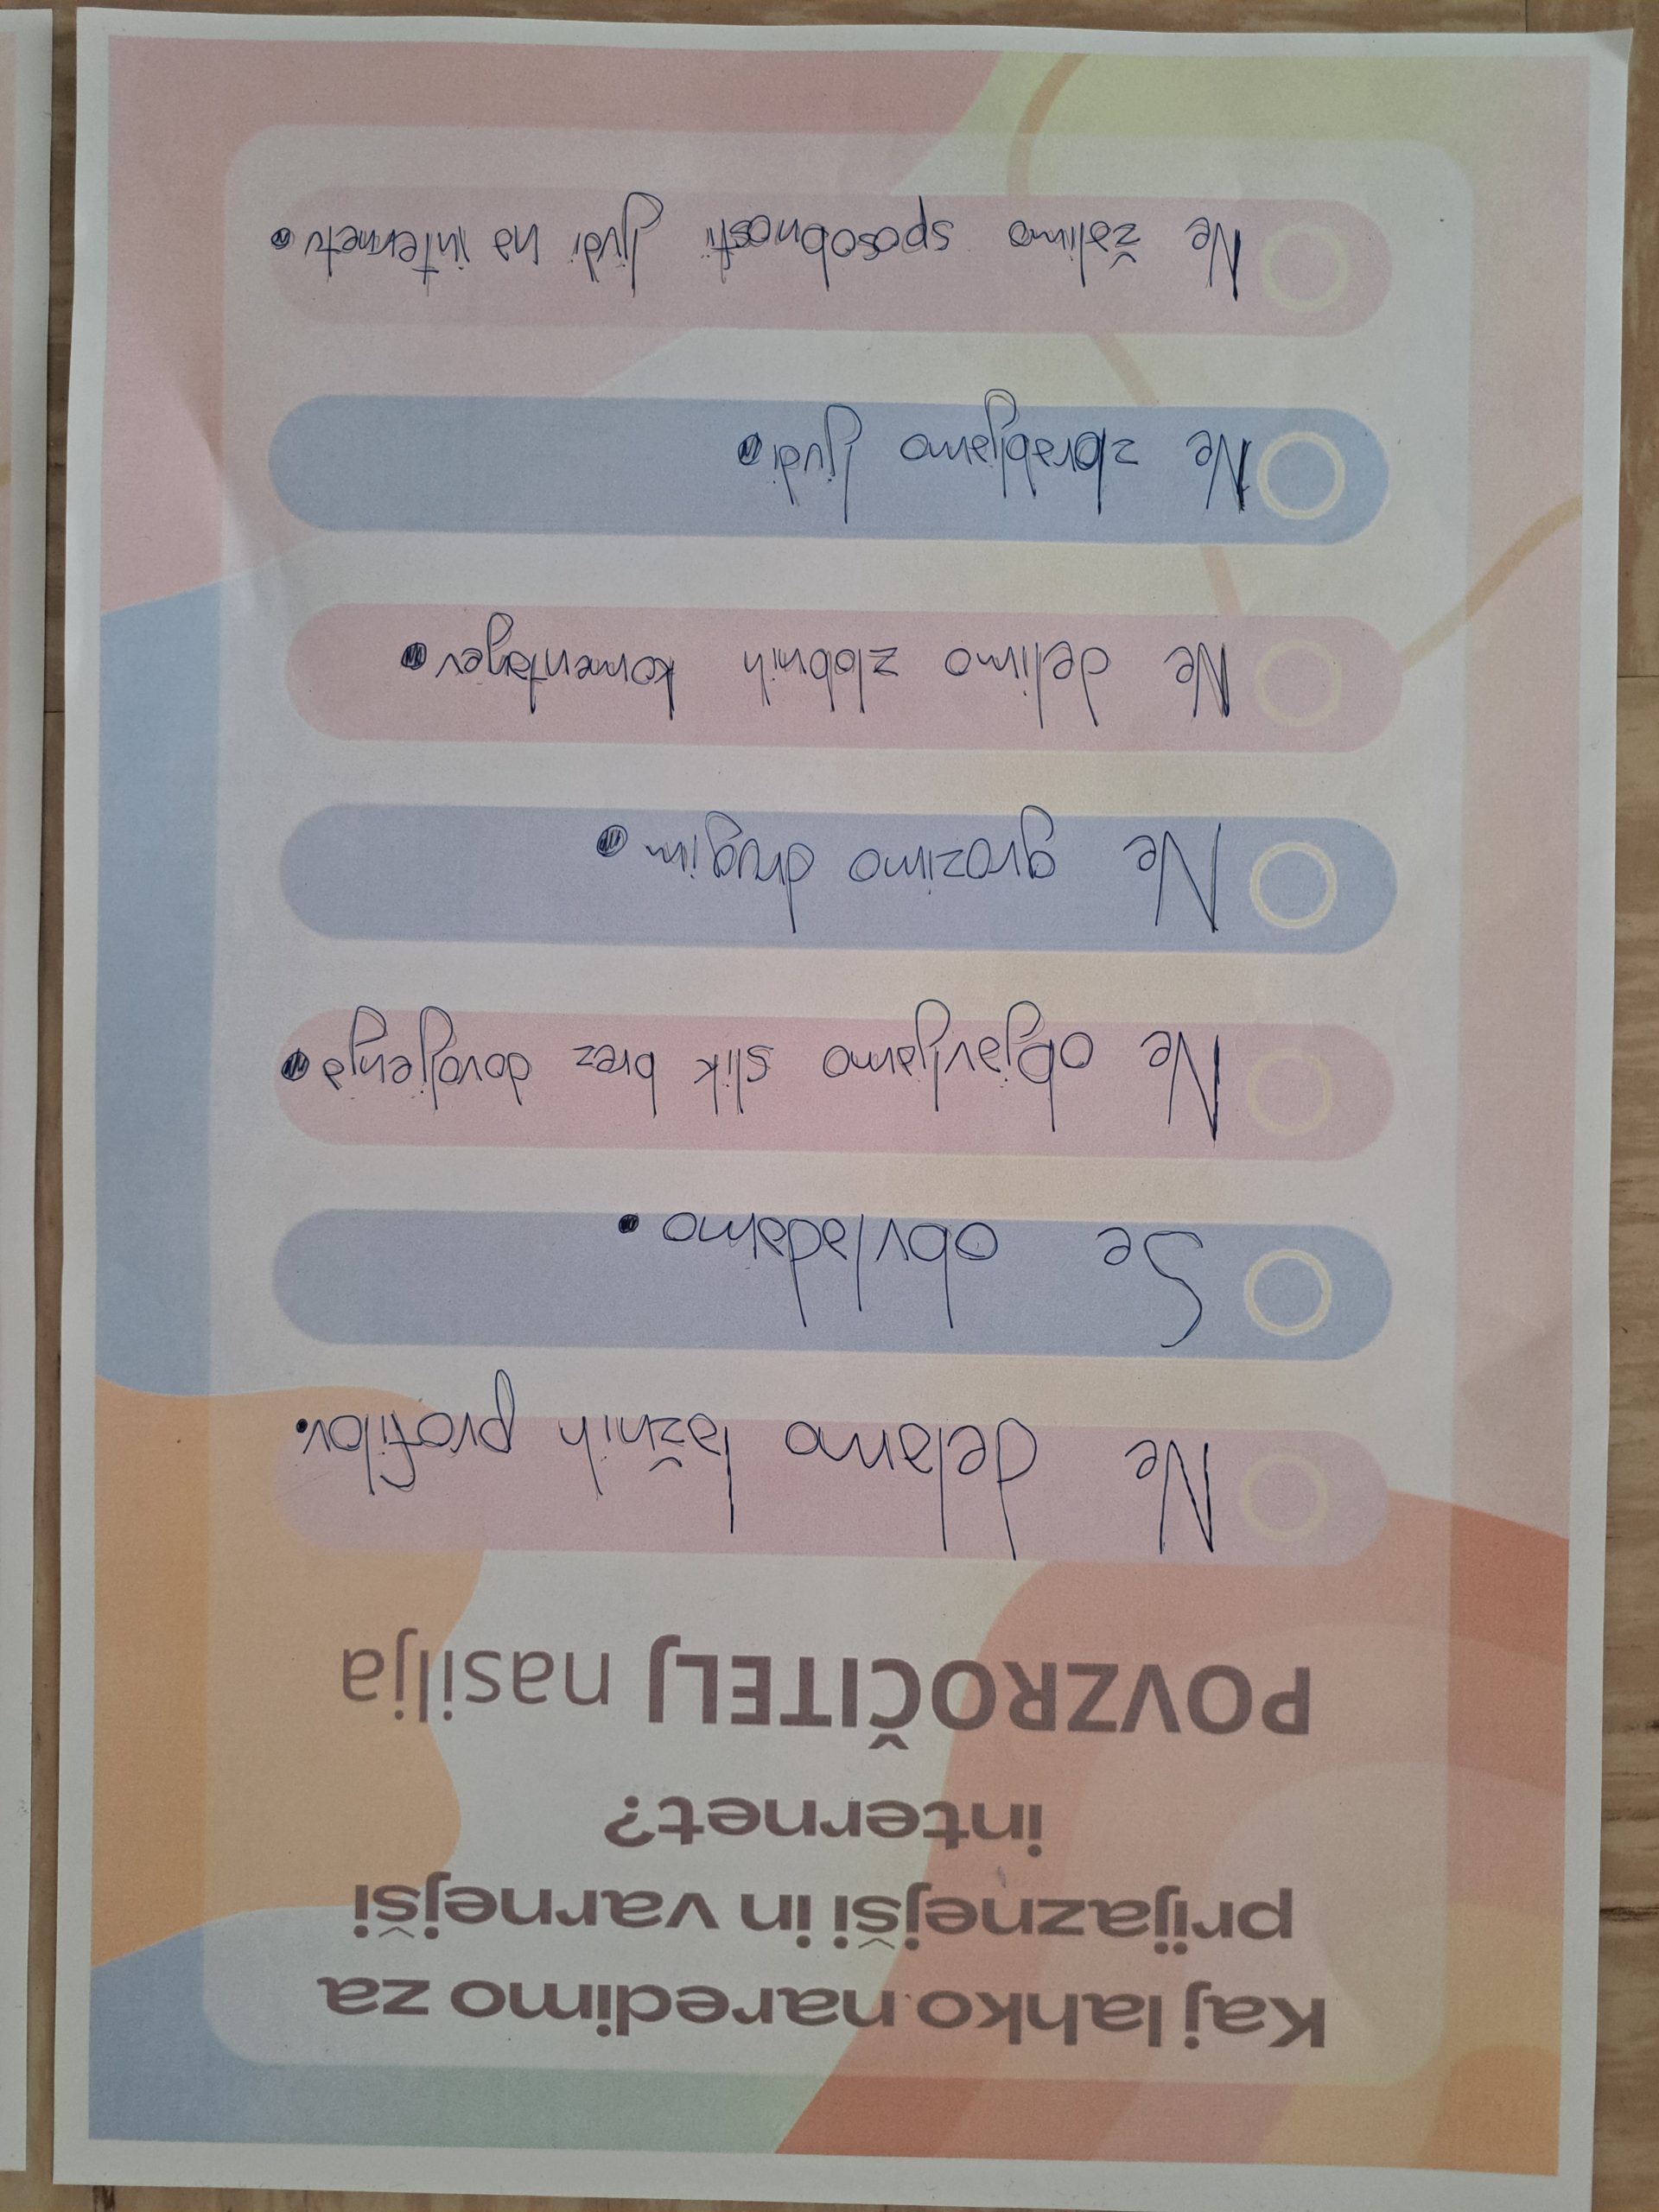 Kaj lahko naredimo za
prijaznejši in varnejši
internet?
POVZROČITELJ nasilja
Ne delamo lažnih profilov.
Se obvladamo.
Ne objavljamo slik brez dovoljenja.
Ne grozimo drugim.
Ne delimo zlobnih komentarjev.
Ne zlorabljamo ljudi.
Ne žalimo sposobnosti ljudi na internetu.